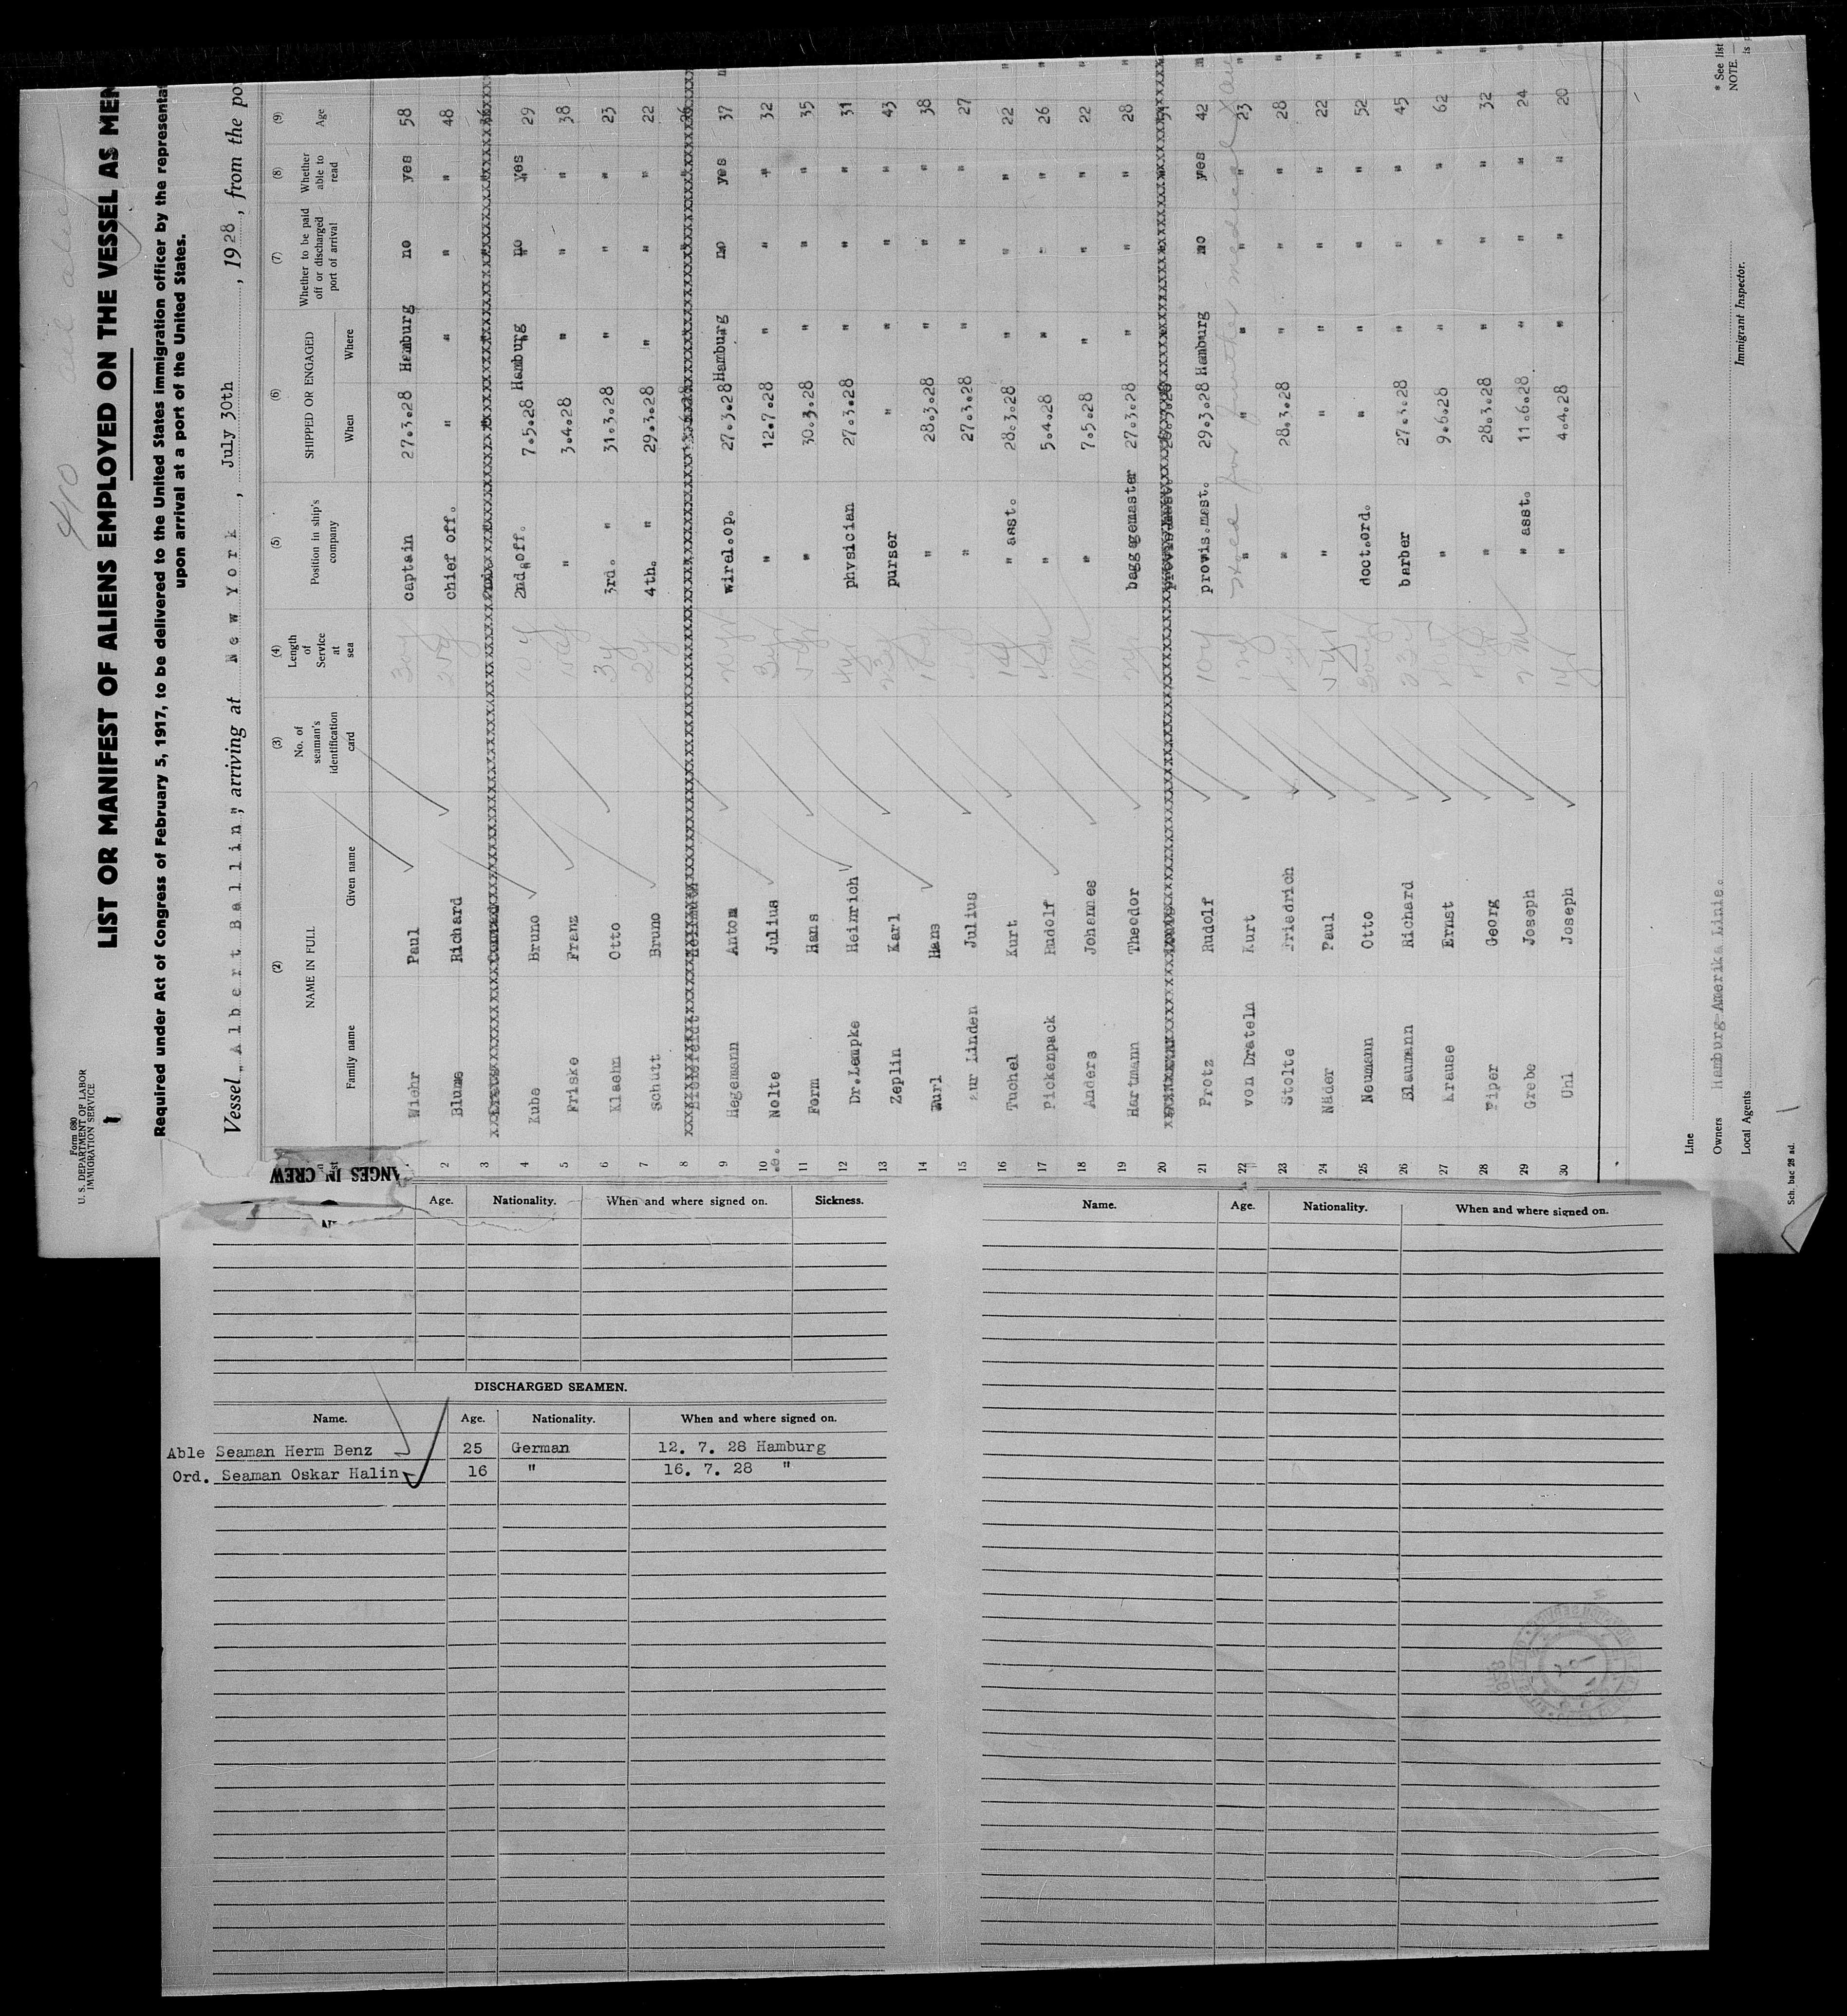 410 all alien
LIST OR MANIFEST OF ALIENS EMPLOYED ON THE VESSEL AS MEM
Form 680
U. S. DEPARTMENT OF LABOR
IMMIGRATION SERVICE
Required under Act of Congress of February 5, 1917, to be delivered to the United States immigration officer by the representa
upon arrival at a port of the United States.
Vessel „Albert Ballin", arriving at New York, July 30th, 1928, from the po
(2) (3) (4) (5) (6) (7) (8) (9)
NAME IN FULL No. of seaman's identification card Length of Service at sea Position in ship's company SHIPPED OR ENGAGED Whether to be paid off or discharged port of arrival Whether able to read Age
Family name Given name When Where
Wiehr Paul 30y captain 27.3.28 Hamburg no yes 58
2 Blume Richard chief off. " " " " 48
3
4 Kube Bruno 10y 2nd off. 7.5.28 Hamburg no yes 29
5 Friske Franz " 3.4.28 " " " 38
6 Klaehn Otto 3y 3rd. " 31.3.28 " " " 23
7 Schütt Bruno 2y 4th. " 29.3.28 " " " 22
8
9 Hegemann Anton wirel.op. 27.3.28 Hamburg no yes 37
10 Nolte Julius " 12.7.28 " " " 32
11 Form Hans " 30.3.28 " " " 35
12 Dr.Lempke Heinrich 4y physician 27.3.28 " " " 31
13 Zeplin Karl 23y purser " " " " 43
14 Hans " 28.3.28 " " " 38
15 zur Linden Julius " 27.3.28 " " " 27
16 Tuchel Kurt " asst. 28.3.28 " " " 22
17 Pickenpack Rudolf " 5.4.28 " " " 26
18 Anders Johannes " 7.5.28 " " " 22
19 Hartmann Theodor baggagemaster 27.3.28 " " " 28
20
21 Protz Rudolf 10y provis.mest. 29.3.28 Hamburg no yes 42
22 von Drateln Kurt " " " " " 23
for further medical exam
23 Stolte Friedrich " 28.3.28 " " " 28
24 Näder Paul " " " " " 22
25 Neumann Otto doct.ord. " " " " 52
26 Blaumann Richard barber 27.3.28 " " " 45
27 Krause Ernst " 9.6.28 " " " 62
28 Piper Georg " 28.3.28 " " " 32
29 Grebe Joseph " asst. 11.6.28 " " " 24
30 Uhl Joseph 1y " 4.4.28 " " " 20
Line
Owners Hamburg-Amerika Linie.
Local Agents
Immigrant Inspector.
* See list
NOTE.—
is p
Sch. bac 28 ad.
ANGES IN CREW
Age. Nationality. When and where signed on. Sickness.
DISCHARGED SEAMEN.
Name. Age. Nationality. When and where signed on.
Able Seaman Herm Benz 25 German 12. 7. 28 Hamburg
Ord. Seaman Oskar Halin 16 " 16. 7. 28 "
Name. Age. Nationality. When and where signed on.